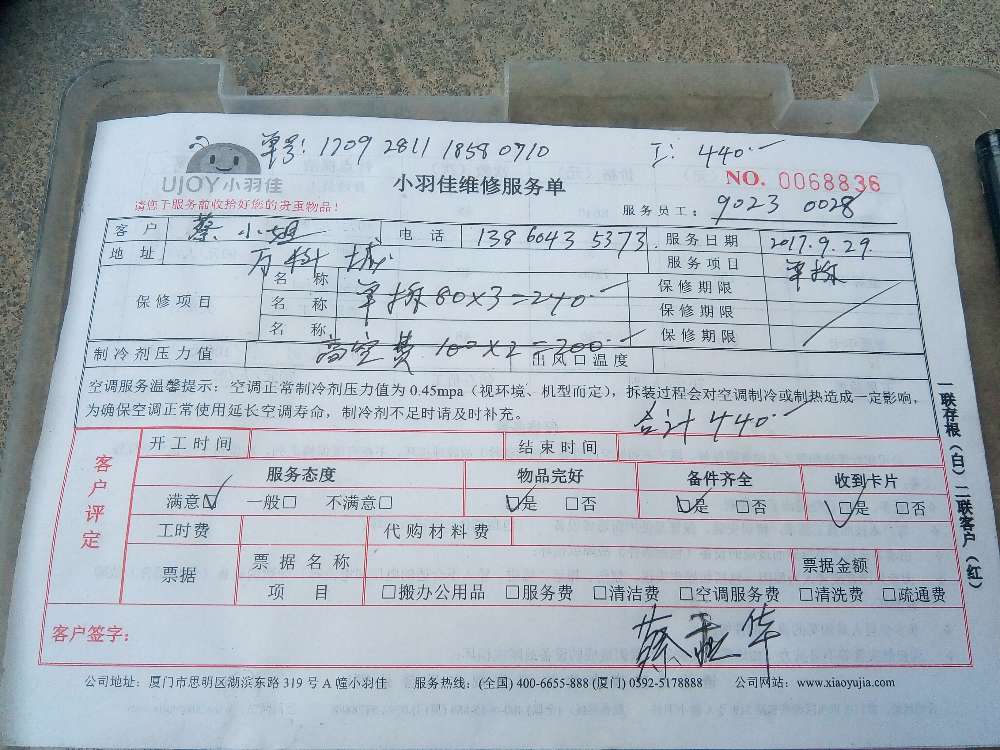 单号: 1709 2811 1858 0710
工: 440.—
UJOY小羽佳
小羽佳维修服务单
NO. 0068836
请您于服务前收拾好您的贵重物品!
服务员工: 9023 0028
客户 蔡小姐 电话 13860435373 服务日期 2017.9.29.
地址 万科城 服务项目 单拆
保修项目
名称 单拆80×3=240.— 保修期限
名称 保修期限
名称 高空费 100×2=200.— 保修期限
制冷剂压力值 出风口温度
空调服务温馨提示:空调正常制冷剂压力值为 0.45mpa(视环境、机型而定),拆装过程会对空调制冷或制热造成一定影响,
为确保空调正常使用延长空调寿命,制冷剂不足时请及时补充。
合计 440.—
客户评定
开工时间 结束时间
服务态度 物品完好 备件齐全 收到卡片
满意☑ 一般□ 不满意□ ☑是 □否 ☑是 □否 ☑是 □否
工时费 代购材料费
票据 票据名称 票据金额
项目 □搬办公用品 □服务费 □清洁费 □空调服务费 □清洗费 □疏通费
客户签字:
一联存根(白)二联客户(红)
公司地址:厦门市思明区湖滨东路 319 号 A 幢小羽佳 服务热线:(全国) 400-6655-888 (厦门) 0592-5178888 公司网站:www.xiaoyujia.com